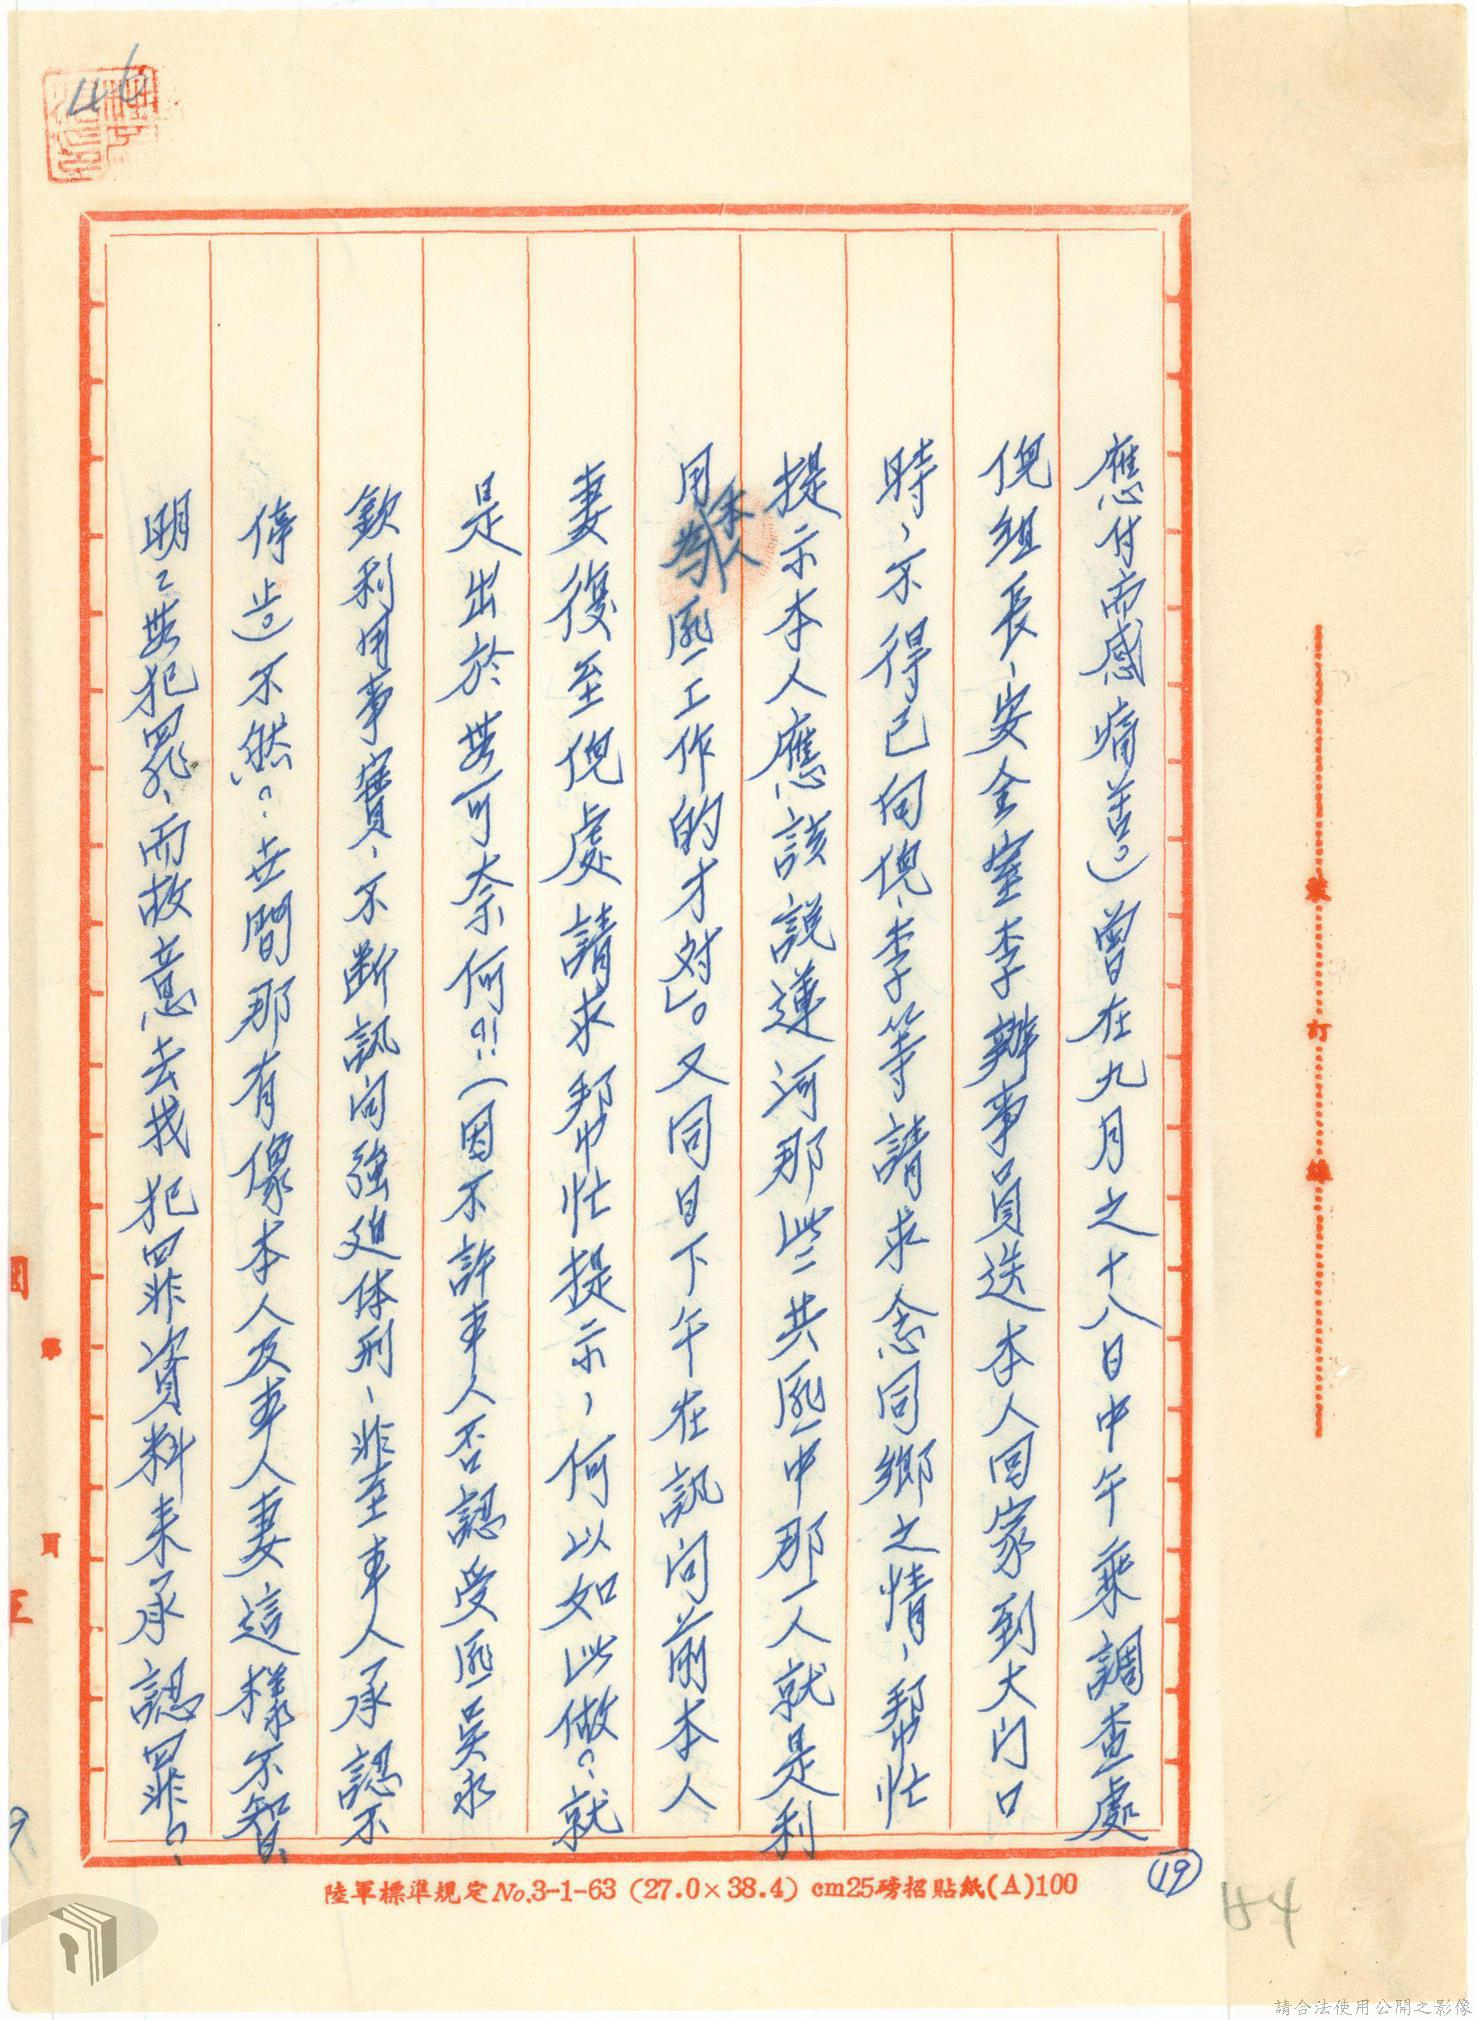 應付而感痛苦。)曾在九月之十八日中午乘調查處
倪組長、安全室李辦事員送本人回家到大门口
時、不得已向倪、李等請求念同鄉之情、帮忙
提示本人應該說蓮河那些共匪中那一人就是利
用本人為匪工作的才对」。又同日下午在訊问前本人
妻復至倪處請求帮忙提示,何以如此做?就
是出於無可奈何?!!(因不許本人否認受匪吳永
欽利用事實、不断訊问強廹体刑、非至本人承認不
停止。)不然?世間那有像本人及本人妻這樣不智、
明々無犯罪、而故意去找犯罪資料来承認罪?、
⑲
陸軍標準規定No.3-1-63 (27.0×38.4) cm25磅招貼紙(A)100
裝
訂
線
第
頁
46
請合法使用公開之影像